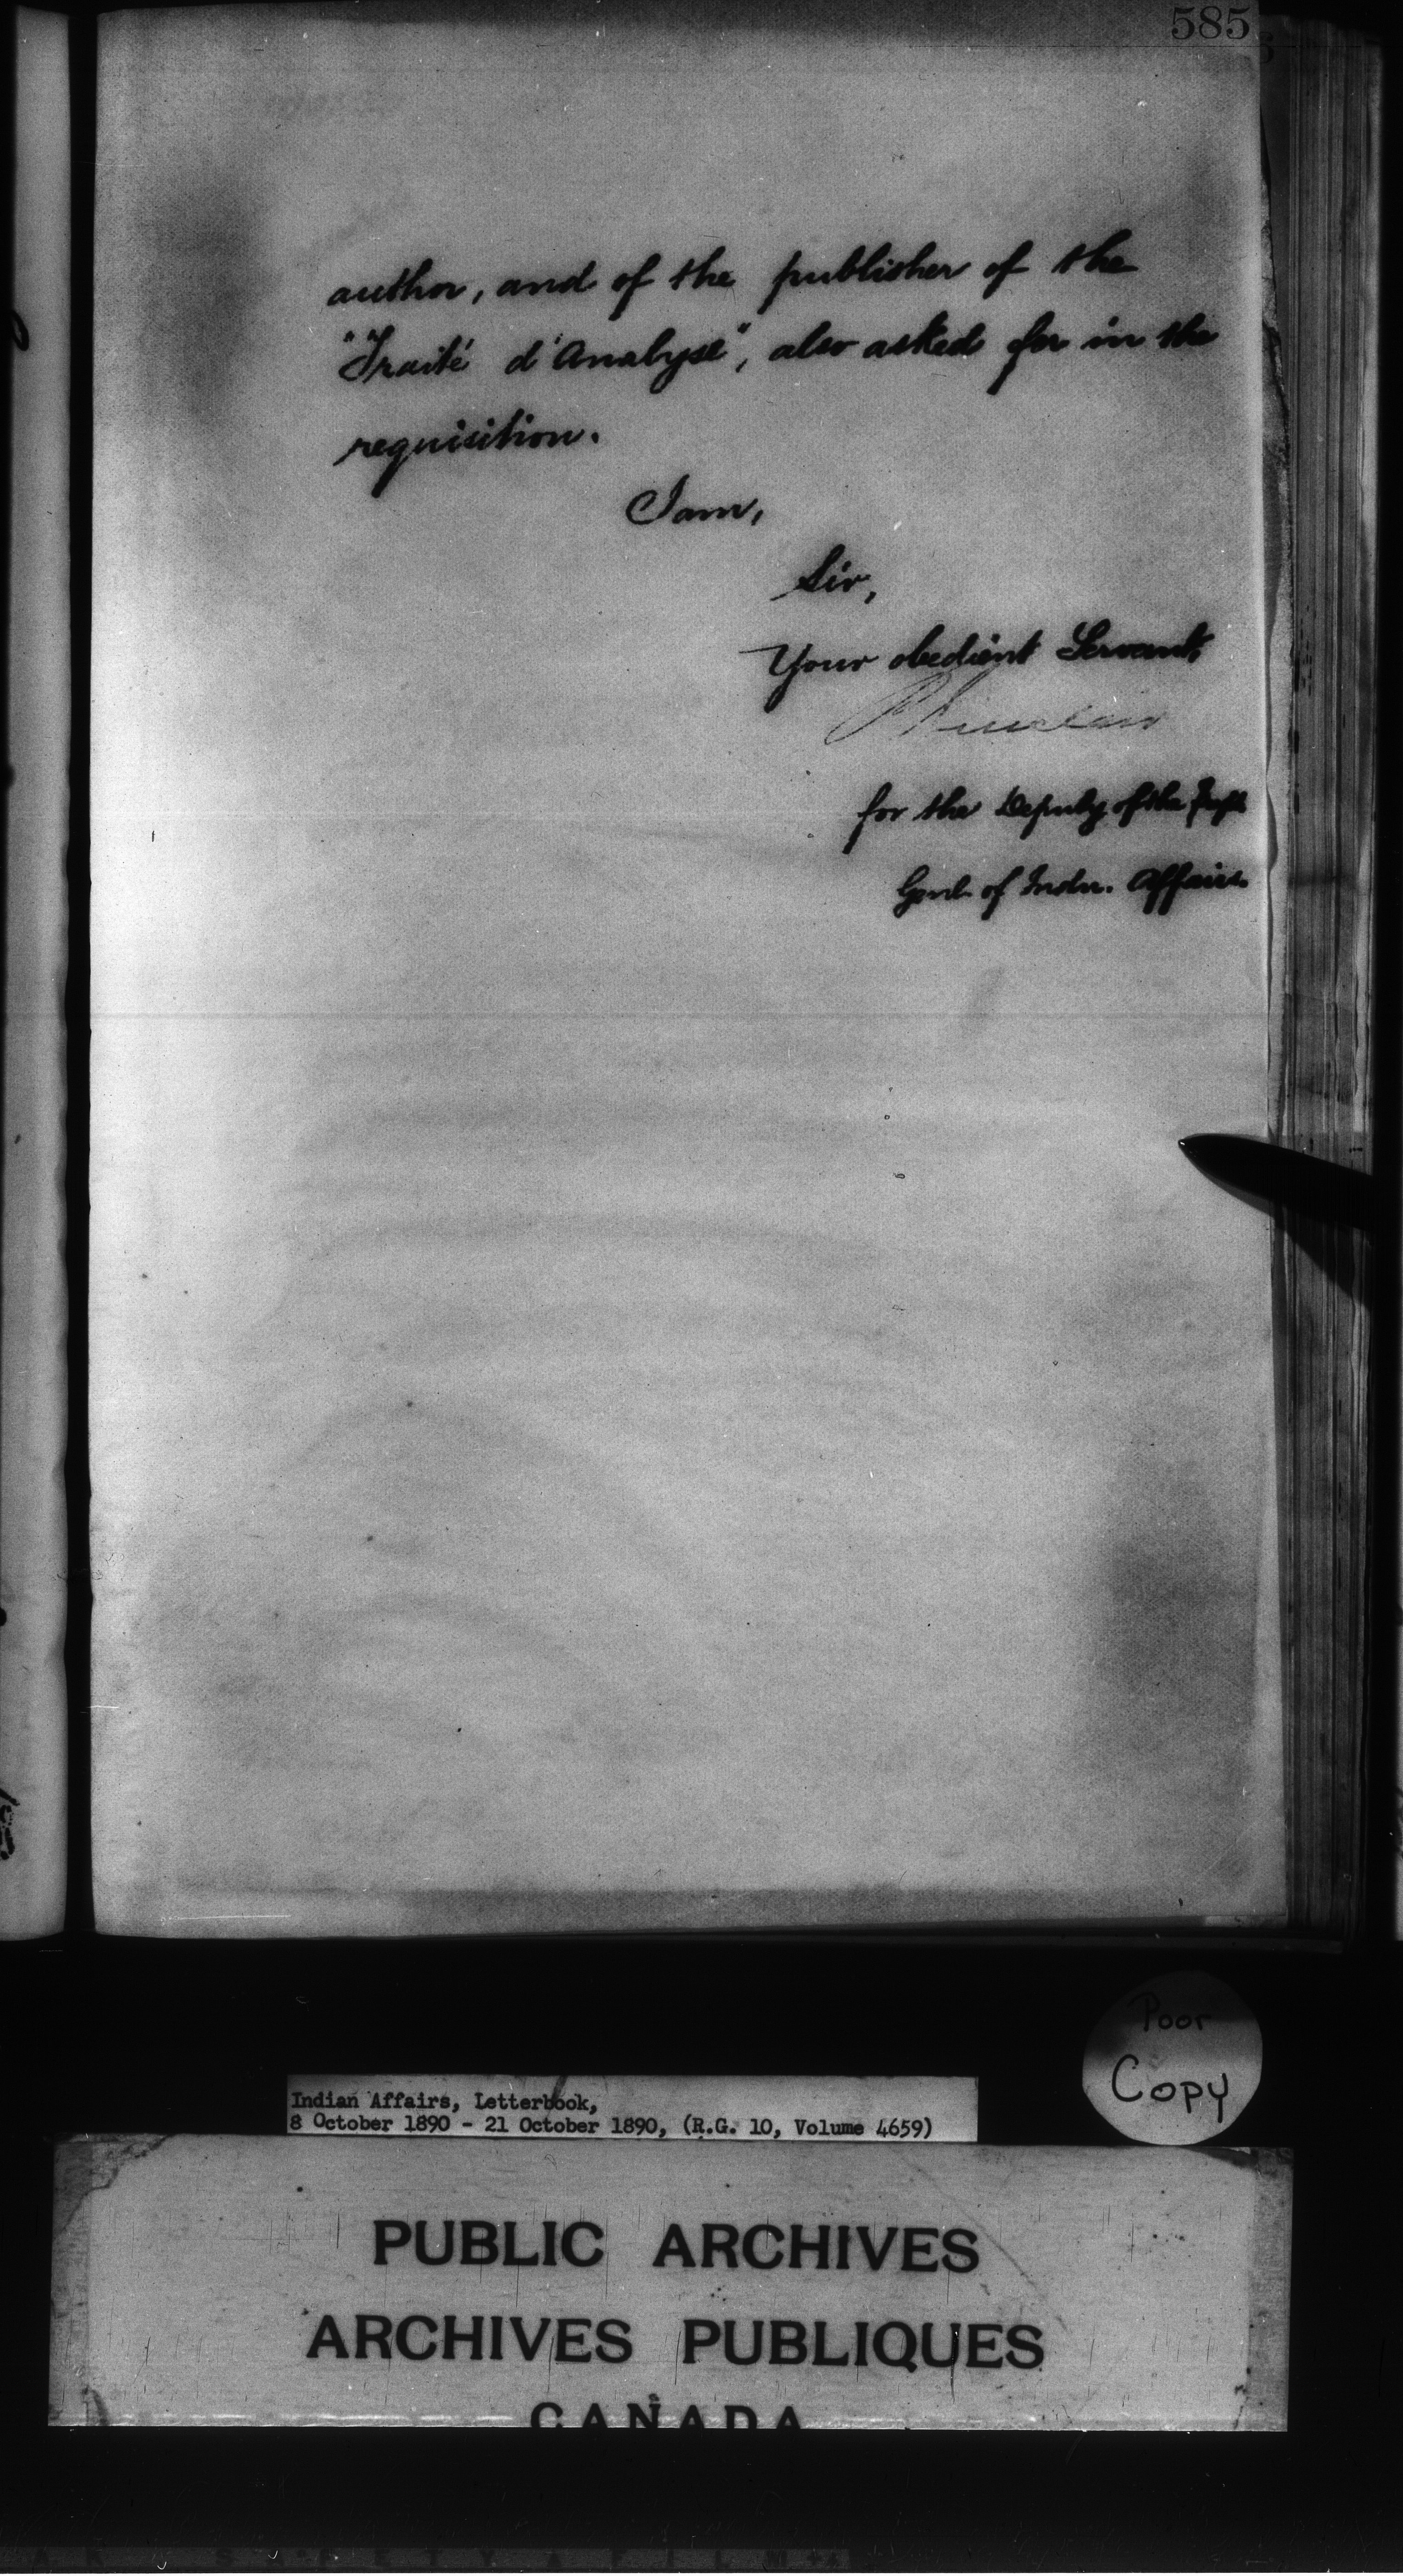 585
author, and of the publisher of the
"Traité d'Analyse", also asked for in the
requisition.
I am,
Sir,
Your obedient Servant,
for the Deputy of the Supt
Genl. of Indn. Affairs.
Poor
Copy
Indian Affairs, Letterbook,
8 October 1890 - 21 October 1890, (R.G. 10, Volume 4659)
PUBLIC ARCHIVES
ARCHIVES PUBLIQUES
CANADA